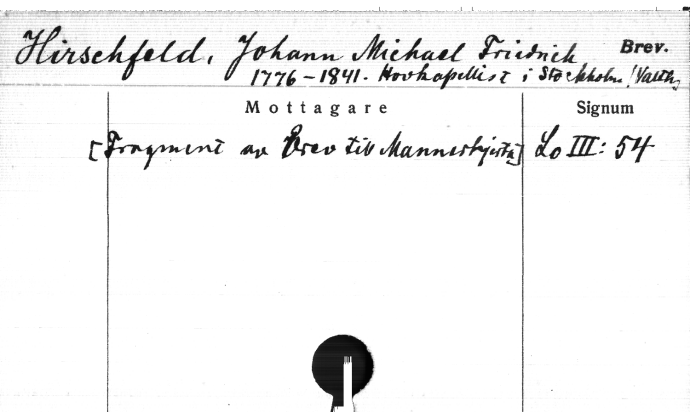 Hirschfeld, Johann Michael Friedrich Brev.
1776-1841. Hovkapellist i Stockholm (Valth)
Mottagare Signum
[Fragment av Brev till Mannerhjerta] Lo III: 54